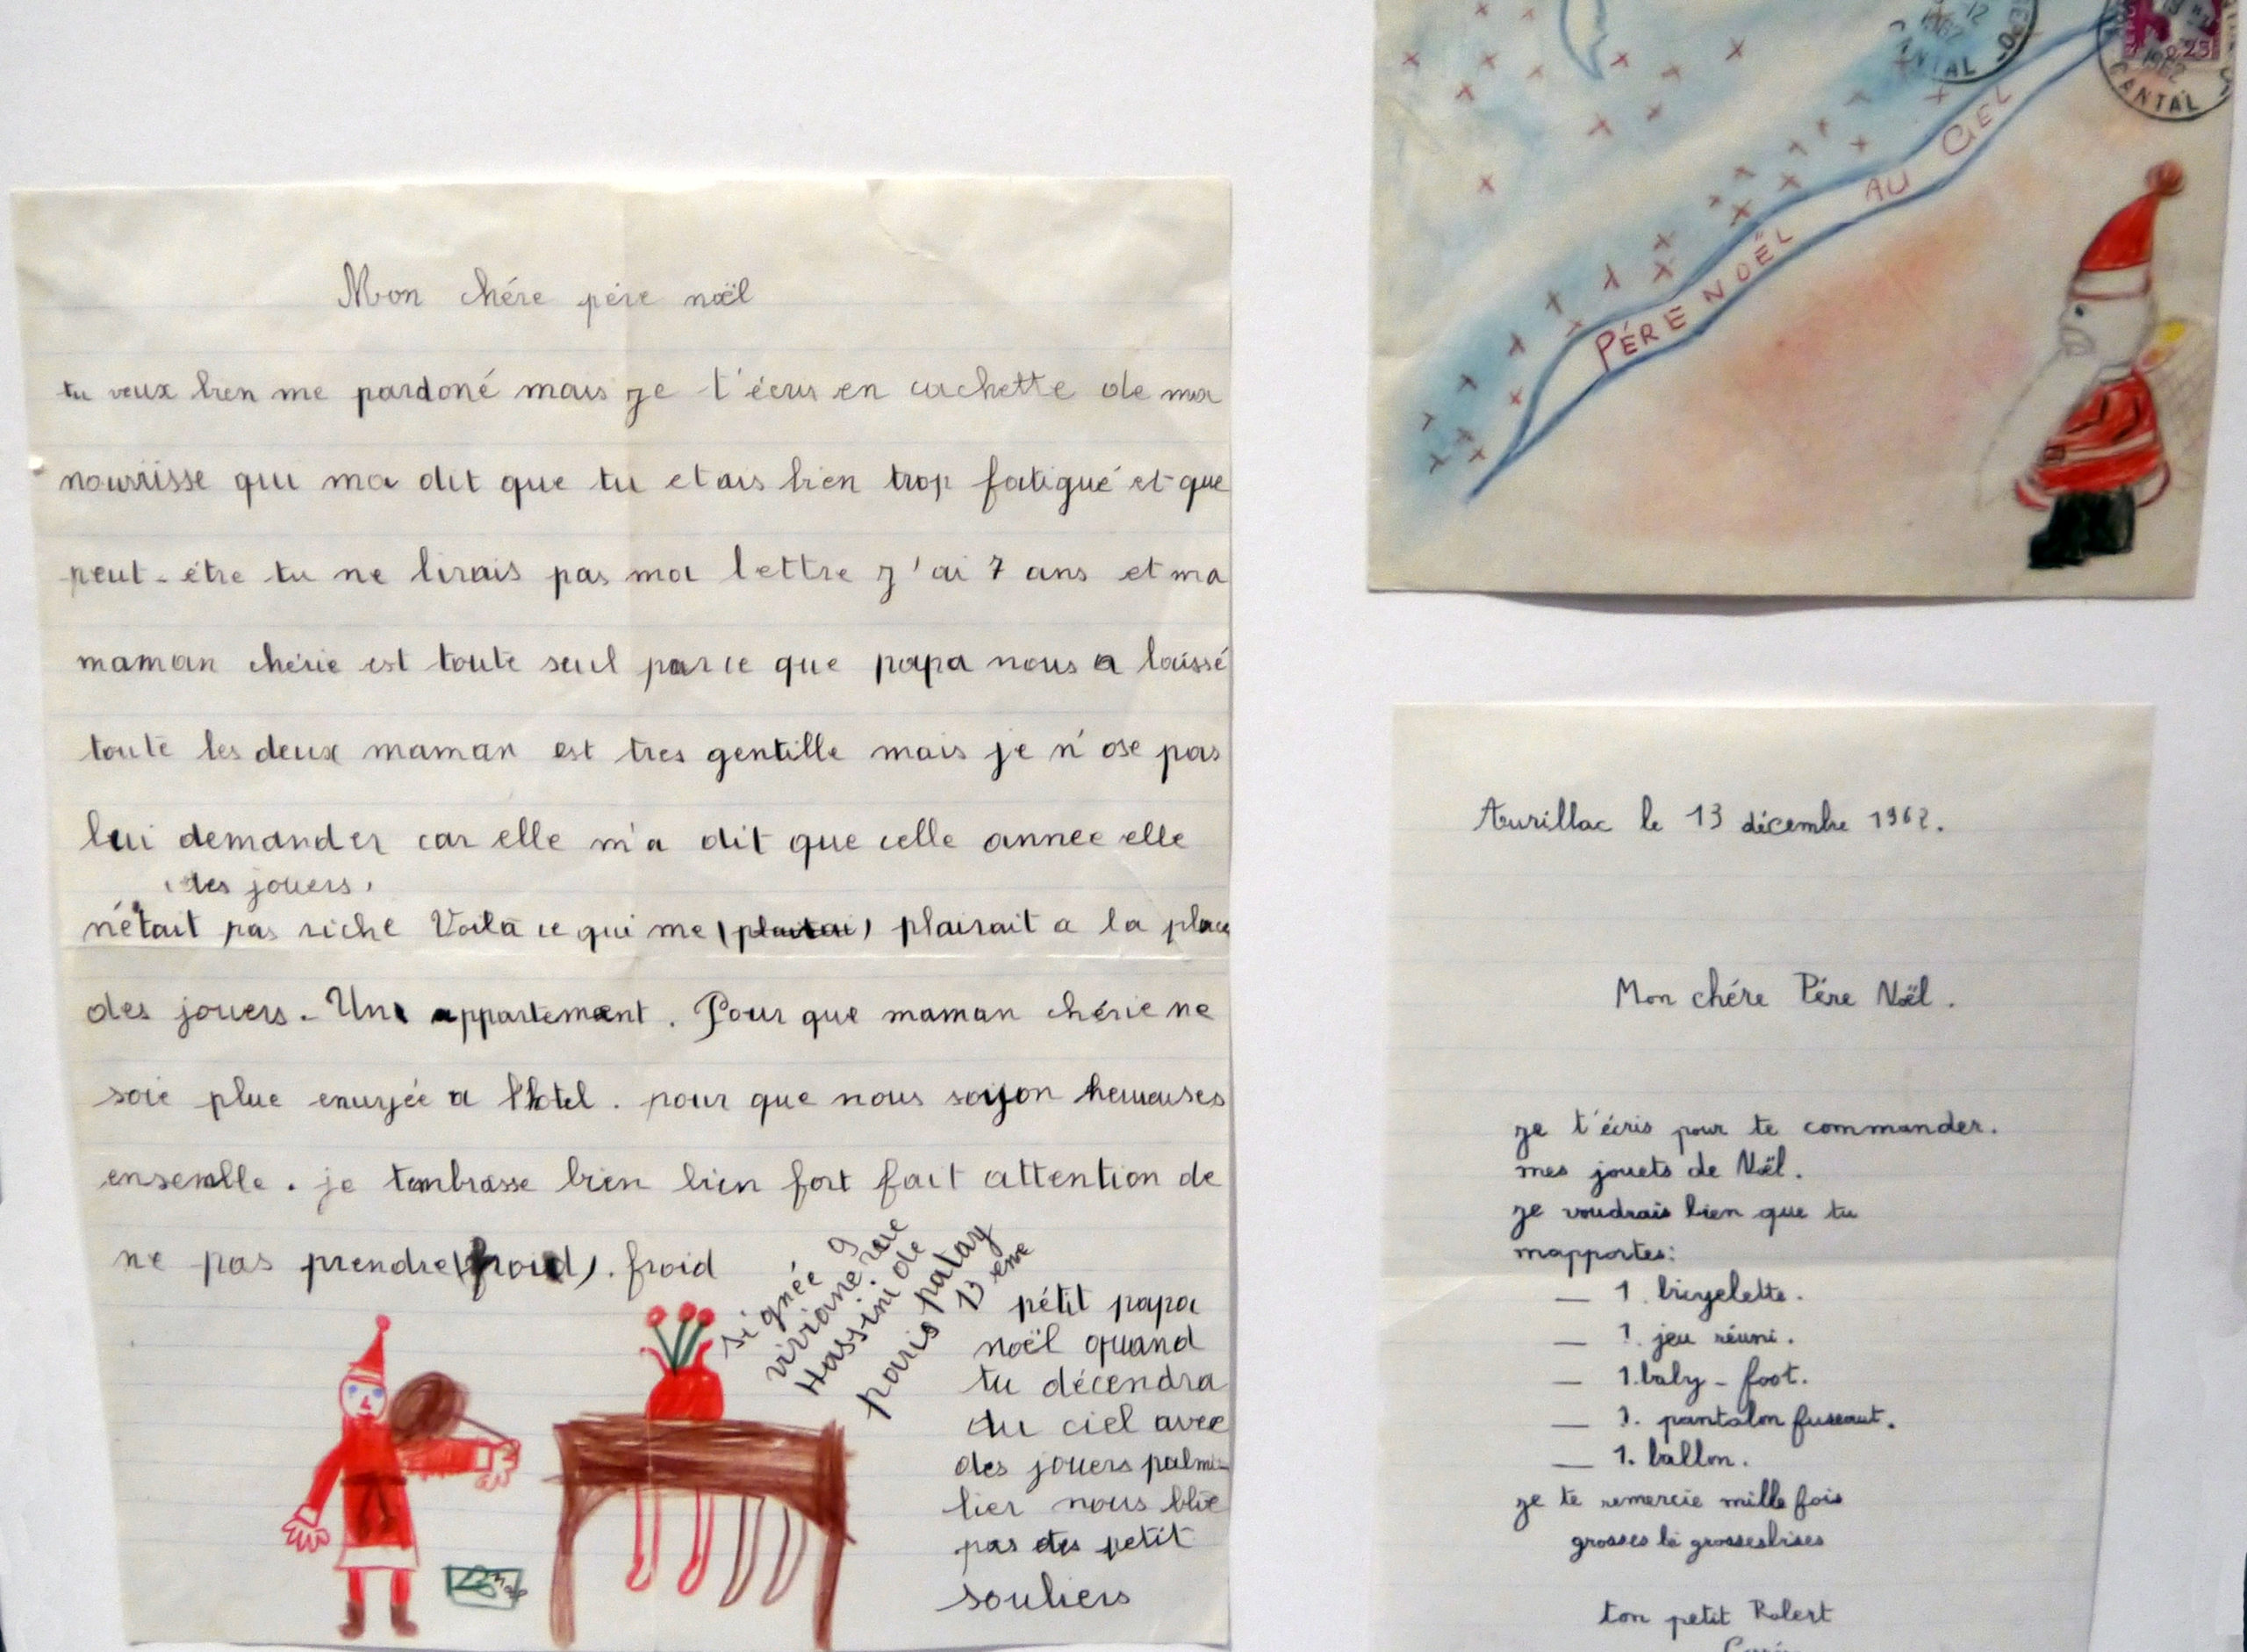 Mon chére pére noël
tu veux bien me pardoné mais je t'écris en cachette de ma
nourrisse qui ma dit que tu etais bien trop fatigué et que
peut-étre tu ne lirais pas ma lettre j'ai 7 ans et ma
maman chérie est toute seul parce que papa nous a laissé
toute les deux maman est tres gentille mais je n'ose pas
lui demander car elle m'a dit que celle annee elle
(des jouers)
n'était pas riche Voila ce qui me (plaitai) plairait a la place
des jouers. Un appartement. Pour que maman chérie ne
soie plue enuyée a l'hotel. pour que nous soiyon heureuses
ensemble. je tembrasse bien bien fort fait attention de
ne pas prendre (froid). froid
signée
viviane
Hassini 9 rue de
paris patay
13 eme
pétit papa
noël quand
tu décendra
du ciel avec
des jouers palmi
lier nous blie
pas des petit
souliers
PÉRE NOËL AU CIEL
12
1962
CANTAL
0,25
1962
CANTAL
Aurillac le 13 décembre 1962.
Mon chére Pére Noël.
je t'écris pour te commander.
mes jouets de Noël.
je voudrais bien que tu
mapportes:
— 1. bicyclette.
— 1. jeu réuni.
— 1. baby-foot.
— 1. pantalon fuseaut.
— 1. ballon.
je te remercie mille fois
grosses bi grosses bises
ton petit Robert